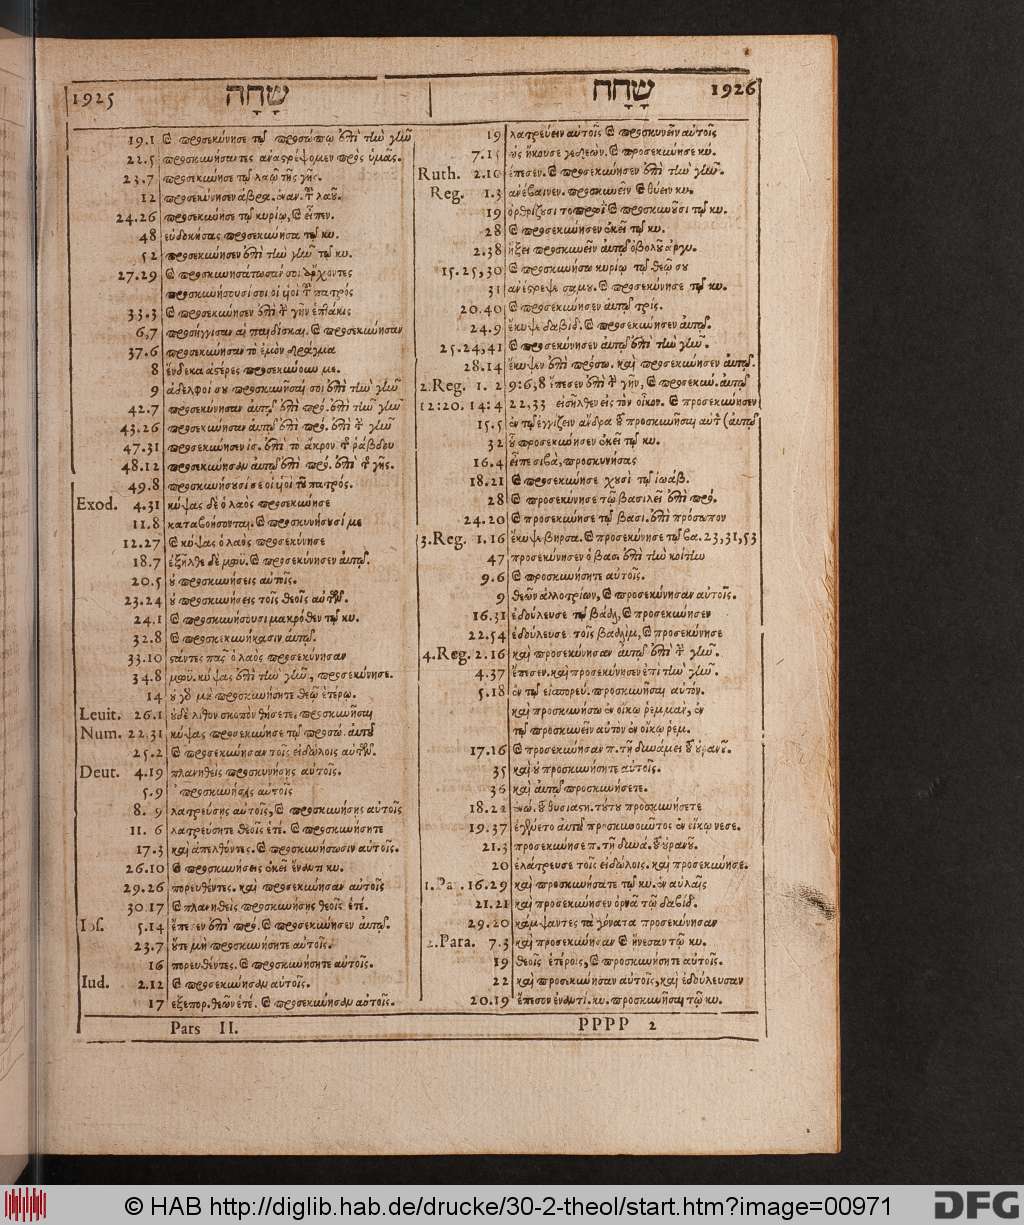 1925 שָׁחָה
שָׁחָה 1926
19.1 προσεκύνησε τῷ προσώπῳ ἐπὶ τὴν γῆν
22.5 προσκυνήσαντες ἀναστρέψομεν πρὸς ὑμᾶς.
23.7 προσεκύνησε τῷ λαῷ τῆς γῆς.
12 προσεκύνησεν ἀβρα. τοῦ λαοῦ.
24.26 προσεκύνησε τῷ κυρίῳ, καὶ εἶπεν.
48 εὐδοκήσας προσεκύνησα τῷ κυ.
52 προσεκύνησεν ἐπὶ τὴν γῆν τῷ κυ.
27.29 καὶ προσκυνησάτωσάν σοι ἄρχοντες
προσκυνήσουσί σοι οἱ υἱοὶ τοῦ πατρός
33.3 καὶ προσεκύνησεν ἐπὶ τὴν γῆν ἑπτάκις
6,7 προσήγγισαν αἱ παιδίσκαι. καὶ προσεκύνησαν
37.6 προσεκύνησαν τὸ ἐμὸν δράγμα
8 ἕνδεκα ἀστέρες προσεκύνουν με.
9 ἀδελφοί σου προσκυνῆσαί σοι ἐπὶ τὴν γῆν
42.7 προσεκύνησαν αὐτῷ ἐπὶ πρό. ἐπὶ τὴν γῆν
43.26 προσεκύνησαν αὐτῷ ἐπὶ πρό. ἐπὶ τὴν γῆν
47.31 προσεκύνησεν ἰσ. ἐπὶ τὸ ἄκρον τῆς ῥάβδου
48.12 προσεκύνησαν αὐτῷ ἐπὶ πρό. ἐπὶ τῆς γῆς.
49.8 προσκυνήσουσί σε οἱ υἱοὶ τοῦ πατρός.
Exod. 4.31 κύψας δὲ ὁ λαὸς προσεκύνησε
11.8 καταβήσονται. καὶ προσκυνήσουσί με
12.27 καὶ κύψας ὁ λαὸς προσεκύνησε
18.7 ἐξῆλθε δὲ μωϋ. καὶ προσεκύνησεν αὐτῷ.
20.5 οὐ προσκυνήσεις αὐτοῖς.
23.24 οὐ προσκυνήσεις τοῖς θεοῖς αὐτῶν.
24.1 καὶ προσκυνήσουσι μακρόθεν τῷ κυ.
32.8 καὶ προσκεκυνήκασιν αὐτῷ.
33.10 στάντες πᾶς ὁ λαὸς προσεκύνησαν
34.8 μωϋ. κύψας ἐπὶ τὴν γῆν, προσεκύνησε.
14 οὐ γὰρ μὴ προσκυνήσητε θεῷ ἑτέρῳ.
Leuit. 26.1 οὐδὲ λίθον σκοπὸν θήσετε, προσκυνῆσαι
Num. 22.31 κύψας προσεκύνησε τῷ προσώ. αὐτοῦ
25.2 καὶ προσεκύνησαν τοῖς εἰδώλοις αὐτῶν.
Deut. 4.19 πλανηθεὶς προσκυνήσῃς αὐτοῖς.
5.9 οὐ προσκυνήσῃς αὐτοῖς
8. 9 λατρεύσῃς αὐτοῖς, καὶ προσκυνήσῃς αὐτοῖς
11. 6 λατρεύσητε θεοῖς ἑτέ. καὶ προσκυνήσητε
17.3 καὶ ἀπελθόντες. καὶ προσκυνήσωσιν αὐτοῖς.
26.10 καὶ προσκυνήσεις ἐκεῖ ἔναντι κυ.
29.26 πορευθέντες. καὶ προσεκύνησαν αὐτοῖς
30.17 καὶ πλανηθεὶς προσκυνήσῃς θεοῖς ἑτέ.
Ios. 5.14 ἔπεσεν ἐπὶ πρό. καὶ προσεκύνησεν αὐτῷ.
23.7 οὔτε μὴ προσκυνήσητε αὐτοῖς.
16 πορευθέντες. καὶ προσκυνήσητε αὐτοῖς.
Iud. 2.12 καὶ προσεκύνησαν αὐτοῖς.
17 ἐξεπορ. θεῶν ἑτέ. καὶ προσεκύνησαν αὐτοῖς.
19 λατρεύειν αὐτοῖς καὶ προσκυνεῖν αὐτοῖς
7.15 ὡς ἤκουσε γεδεών. καὶ προσεκύνησε κύ.
Ruth. 2.10 ἔπεσεν. καὶ προσεκύνησεν ἐπὶ τὴν γῆν.
Reg. 1.3 ἀνέβαινεν. προσκυνεῖν καὶ θύειν κυ.
19 ὀρθρίζουσι τὸ πρωῒ καὶ προσκυνοῦσι τῷ κυ.
28 καὶ προσεκύνησεν ἐκεῖ τῷ κυ.
2.38 ἥξει προσκυνεῖν αὐτῷ ὀβολοῦ ἀργυ.
15.25,30 καὶ προσκυνήσω κυρίῳ τῷ θεῷ σου
31 ἀνέστρεψε σαμου. καὶ προσεκύνησε τῷ κυ.
20.40 καὶ προσεκύνησεν αὐτῷ τρίς.
24.9 ἔκυψε δαβίδ. καὶ προσεκύνησεν αὐτῷ.
25.24,41 καὶ προσεκύνησεν αὐτῷ ἐπὶ τὴν γῆν.
28.14 ἔκυψεν ἐπὶ πρόσω. καὶ προσεκύνησεν αὐτῷ.
2.Reg. 1. 2 9:6,8 ἔπεσεν ἐπὶ τὴν γῆν, καὶ προσεκύν. αὐτῷ
12:20. 14:4 22,33 εἰσῆλθεν εἰς τὸν οἶκον. καὶ προσεκύνησεν
15.5 ἐν τῷ ἐγγίζειν ἄνδρα τοῦ προσκυνῆσαι αὐτ (αὐτῷ
32 οὗ προσεκύνησεν ἐκεῖ τῷ κυ.
16.4 εἶπε σιβὰ, προσκυνήσας
18.21 καὶ προσεκύνησε χουσὶ τῷ ἰωάβ.
28 καὶ προσεκύνησε τῷ βασιλεῖ ἐπὶ πρό.
24.20 καὶ προσεκύνησε τῷ βασι. ἐπὶ πρόσωπον
3.Reg. 1.16 ἔκυψε βηρσα. καὶ προσεκύνησε τῷ βα. 23,31,53
47 προσεκύνησεν ὁ βασι. ἐπὶ τὴν κοίτην
9.6 καὶ προσκυνήσητε αὐτοῖς.
9 θεῶν ἀλλοτρίων, καὶ προσεκύνησαν αὐτοῖς.
16.31 ἐδούλευσε τῷ βαὰλ, καὶ προσεκύνησεν
22.54 ἐδούλευσε τοῖς βααλὶμ, καὶ προσεκύνησε
4.Reg. 2.16 καὶ προσεκύνησαν αὐτῷ ἐπὶ τὴν γῆν.
4.37 ἔπεσεν. καὶ προσεκύνησεν ἐπὶ τὴν γῆν.
5.18 ἐν τῷ εἰσπορεύ. προσκυνῆσαι αὐτόν.
καὶ προσκυνήσω ἐν οἴκῳ ῥεμμὰν, ἐν
τῷ προσκυνεῖν αὐτὸν ἐν οἴκῳ ῥεμ.
17.16 καὶ προσεκύνησαν π. τῇ δυνάμει τοῦ οὐρανοῦ.
35 καὶ οὐ προσκυνήσητε αὐτοῖς.
36 καὶ αὐτῷ προσκυνήσετε.
18.22 ἐνώ. τοῦ θυσιαστη. τούτου προσκυνήσετε
19.37 ἐγένετο αὐτοῦ προσκυνοῦντος ἐν οἴκῳ νεσε.
21.3 προσεκύνησε π. τῇ δυνά. τοῦ οὐρανοῦ.
20 ἐλάτρευσε τοῖς εἰδώλοις. καὶ προσεκύνησε.
1.Par. 16.29 καὶ προσκυνήσατε τῷ κυ. ἐν αὐλαῖς
21.21 καὶ προσεκύνησεν ὀρνὰ τῷ δαβίδ.
29.20 κάμψαντες τὰ γόνατα προσεκύνησαν
2.Para. 7.3 καὶ προσεκύνησαν καὶ ᾔνεσαν τῷ κυ.
19 θεοῖς ἑτέροις, καὶ προσκυνήσητε αὐτοῖς.
22 καὶ προσεκύνησαν αὐτοῖς, καὶ ἐδούλευσαν
20.19 ἔπεσον ἔναντι. κυ. προσκυνῆσαι τῷ κυ.
Pars II.
PPPP 2
© HAB http://diglib.hab.de/drucke/30-2-theol/start.htm?image=00971
DFG